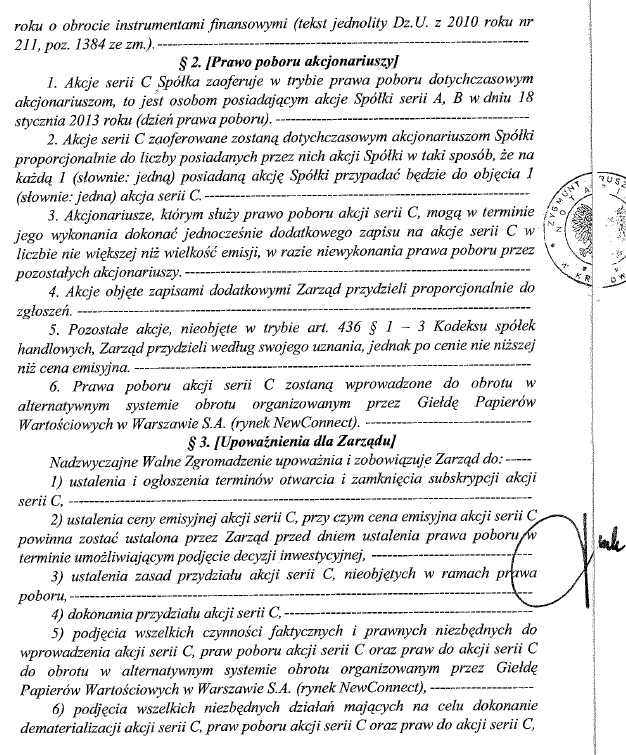 roku o obrocie instrumentami finansowymi (tekst jednolity Dz.U. z 2010 roku nr
211, poz. 1384 ze zm.).
§ 2. [Prawo poboru akcjonariuszy]
1. Akcje serii C Spółka zaoferuje w trybie prawa poboru dotychczasowym
akcjonariuszom, to jest osobom posiadającym akcje Spółki serii A, B w dniu 18
stycznia 2013 roku (dzień prawa poboru).
2. Akcje serii C zaoferowane zostaną dotychczasowym akcjonariuszom Spółki
proporcjonalnie do liczby posiadanych przez nich akcji Spółki w taki sposób, że na
każdą 1 (słownie: jedną) posiadaną akcję Spółki przypadać będzie do objęcia 1
(słownie: jedna) akcja serii C.
3. Akcjonariusze, którym służy prawo poboru akcji serii C, mogą w terminie
jego wykonania dokonać jednocześnie dodatkowego zapisu na akcje serii C w
liczbie nie większej niż wielkość emisji, w razie niewykonania prawa poboru przez
pozostałych akcjonariuszy.
4. Akcje objęte zapisami dodatkowymi Zarząd przydzieli proporcjonalnie do
zgłoszeń.
5. Pozostałe akcje, nieobjęte w trybie art. 436 § 1 – 3 Kodeksu spółek
handlowych, Zarząd przydzieli według swojego uznania, jednak po cenie nie niższej
niż cena emisyjna.
6. Prawa poboru akcji serii C zostaną wprowadzone do obrotu w
alternatywnym systemie obrotu organizowanym przez Giełdę Papierów
Wartościowych w Warszawie S.A. (rynek NewConnect).
§ 3. [Upoważnienia dla Zarządu]
Nadzwyczajne Walne Zgromadzenie upoważnia i zobowiązuje Zarząd do:
1) ustalenia i ogłoszenia terminów otwarcia i zamknięcia subskrypcji akcji
serii C,
2) ustalenia ceny emisyjnej akcji serii C, przy czym cena emisyjna akcji serii C
powinna zostać ustalona przez Zarząd przed dniem ustalenia prawa poboru w
terminie umożliwiającym podjęcie decyzji inwestycyjnej,
3) ustalenia zasad przydziału akcji serii C, nieobjętych w ramach prawa
poboru,
4) dokonania przydziału akcji serii C,
5) podjęcia wszelkich czynności faktycznych i prawnych niezbędnych do
wprowadzenia akcji serii C, praw poboru akcji serii C oraz praw do akcji serii C
do obrotu w alternatywnym systemie obrotu organizowanym przez Giełdę
Papierów Wartościowych w Warszawie S.A. (rynek NewConnect),
6) podjęcia wszelkich niezbędnych działań mających na celu dokonanie
dematerializacji akcji serii C, praw poboru akcji serii C oraz praw do akcji serii C,
ZYGMUNT